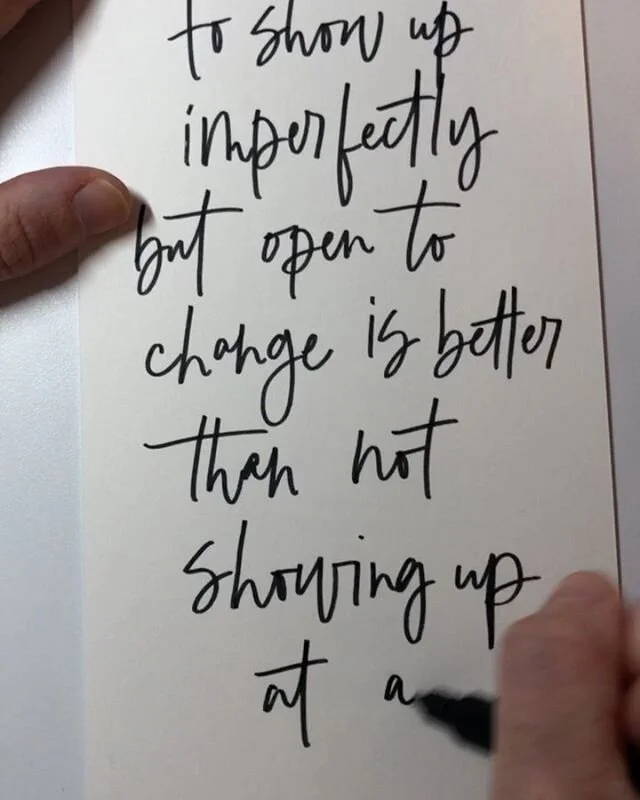 to show up
imperfectly
but open to
change is better
than not
showing up
at a